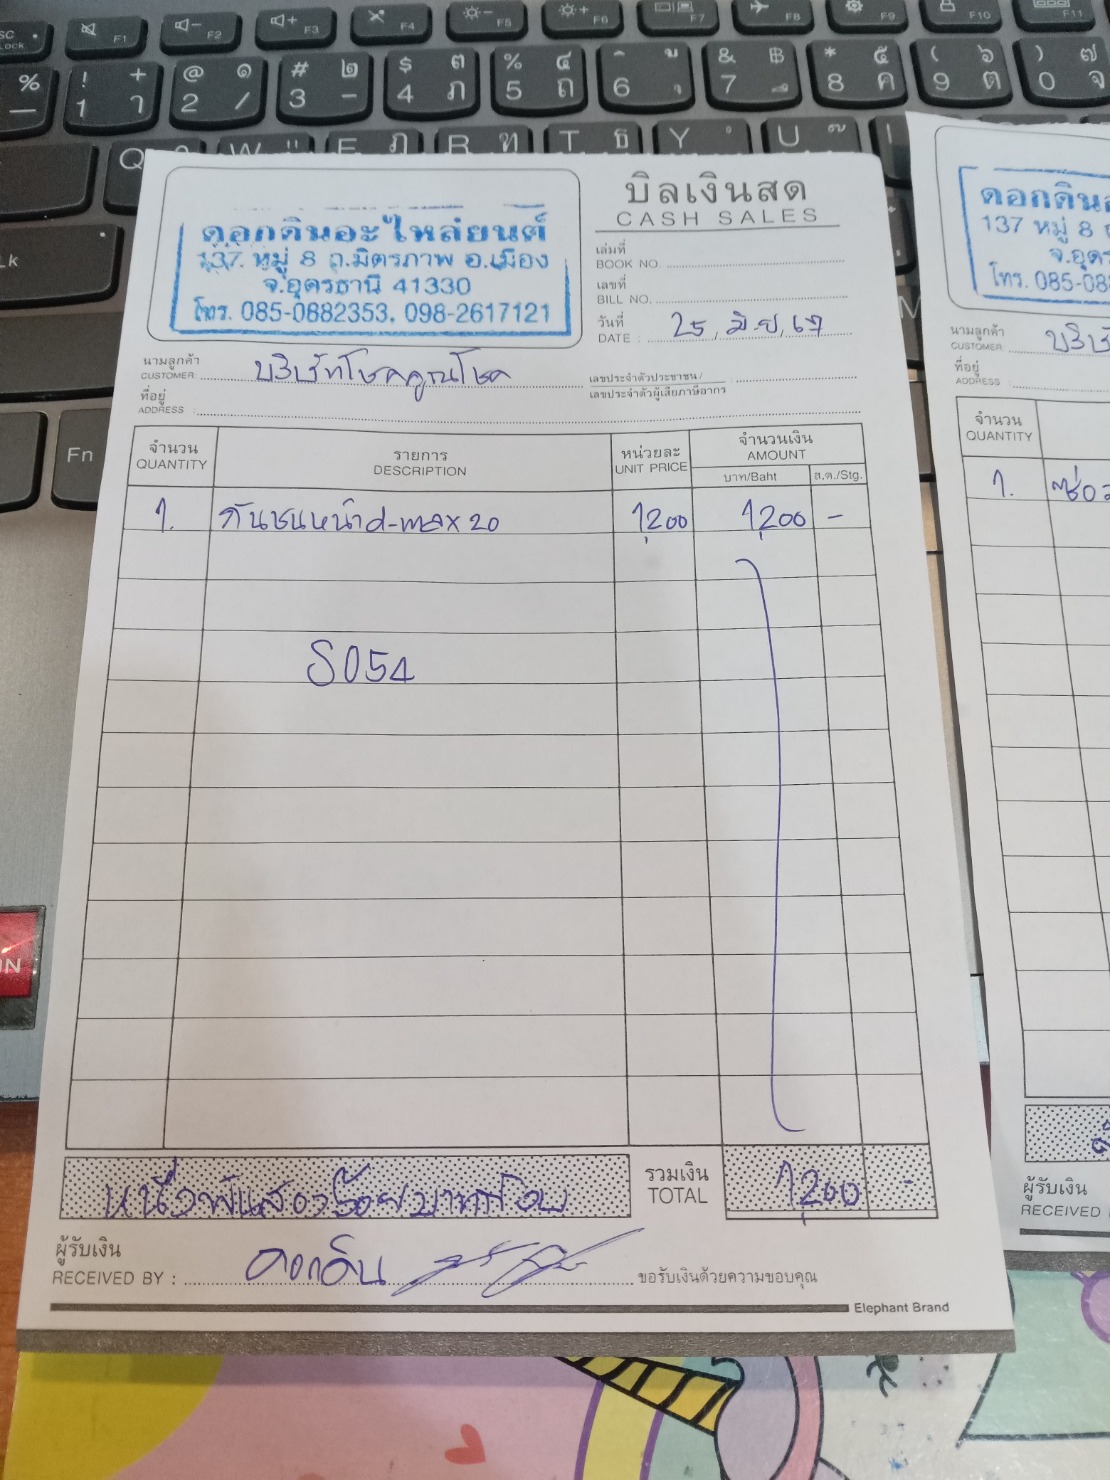 บิลเงินสด
CASH SALES
ดอกดินอะไหล่ยนต์
137 หมู่ 8 ถ.มิตรภาพ อ.เมือง
จ.อุดรธานี 41330
โทร. 085-0882353, 098-2617121
เล่มที่
BOOK NO.
เลขที่
BILL NO.
วันที่
DATE : 25, มิ.ย, 67
นามลูกค้า
CUSTOMER บริษัทโชคคูณโชค
เลขประจำตัวประชาชน /
เลขประจำตัวผู้เสียภาษีอากร
ที่อยู่
ADDRESS
จำนวน รายการ หน่วยละ จำนวนเงิน
QUANTITY DESCRIPTION UNIT PRICE AMOUNT
บาท/Baht ส.ต./Stg.
1. กันชนหน้า d-max 20 1,200 1,200 -
S054
หนึ่งพันสองร้อยบาทถ้วน
รวมเงิน
TOTAL 1,200 -
ผู้รับเงิน
RECEIVED BY : ดอกดิน ขอรับเงินด้วยความขอบคุณ
Elephant Brand
137 หมู่ 8
นามลูกค้า
CUSTOMER
ที่อยู่
ADDRESS
จำนวน
QUANTITY
1.
ผู้รับเงิน
RECEIVED